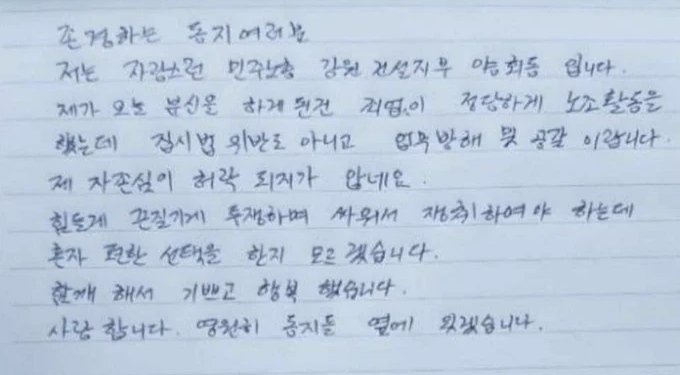 존경하는 동지여러분
저는 자랑스런 민주노총 강원 건설지부 양회동 입니다.
제가 오늘 분신을 하게 된건 죄없이 정당하게 노조활동을
했는데 집시법 위반도 아니고 업무방해 및 공갈 이랍니다.
제 자존심이 허락 되지가 않네요.
힘들게 끈질기게 투쟁하며 싸워서 쟁취하여야 하는데
혼자 편한 선택을 한지 모르겠습니다.
함께 해서 기쁘고 행복 했습니다.
사랑합니다. 영원히 동지들 옆에 있겠습니다.